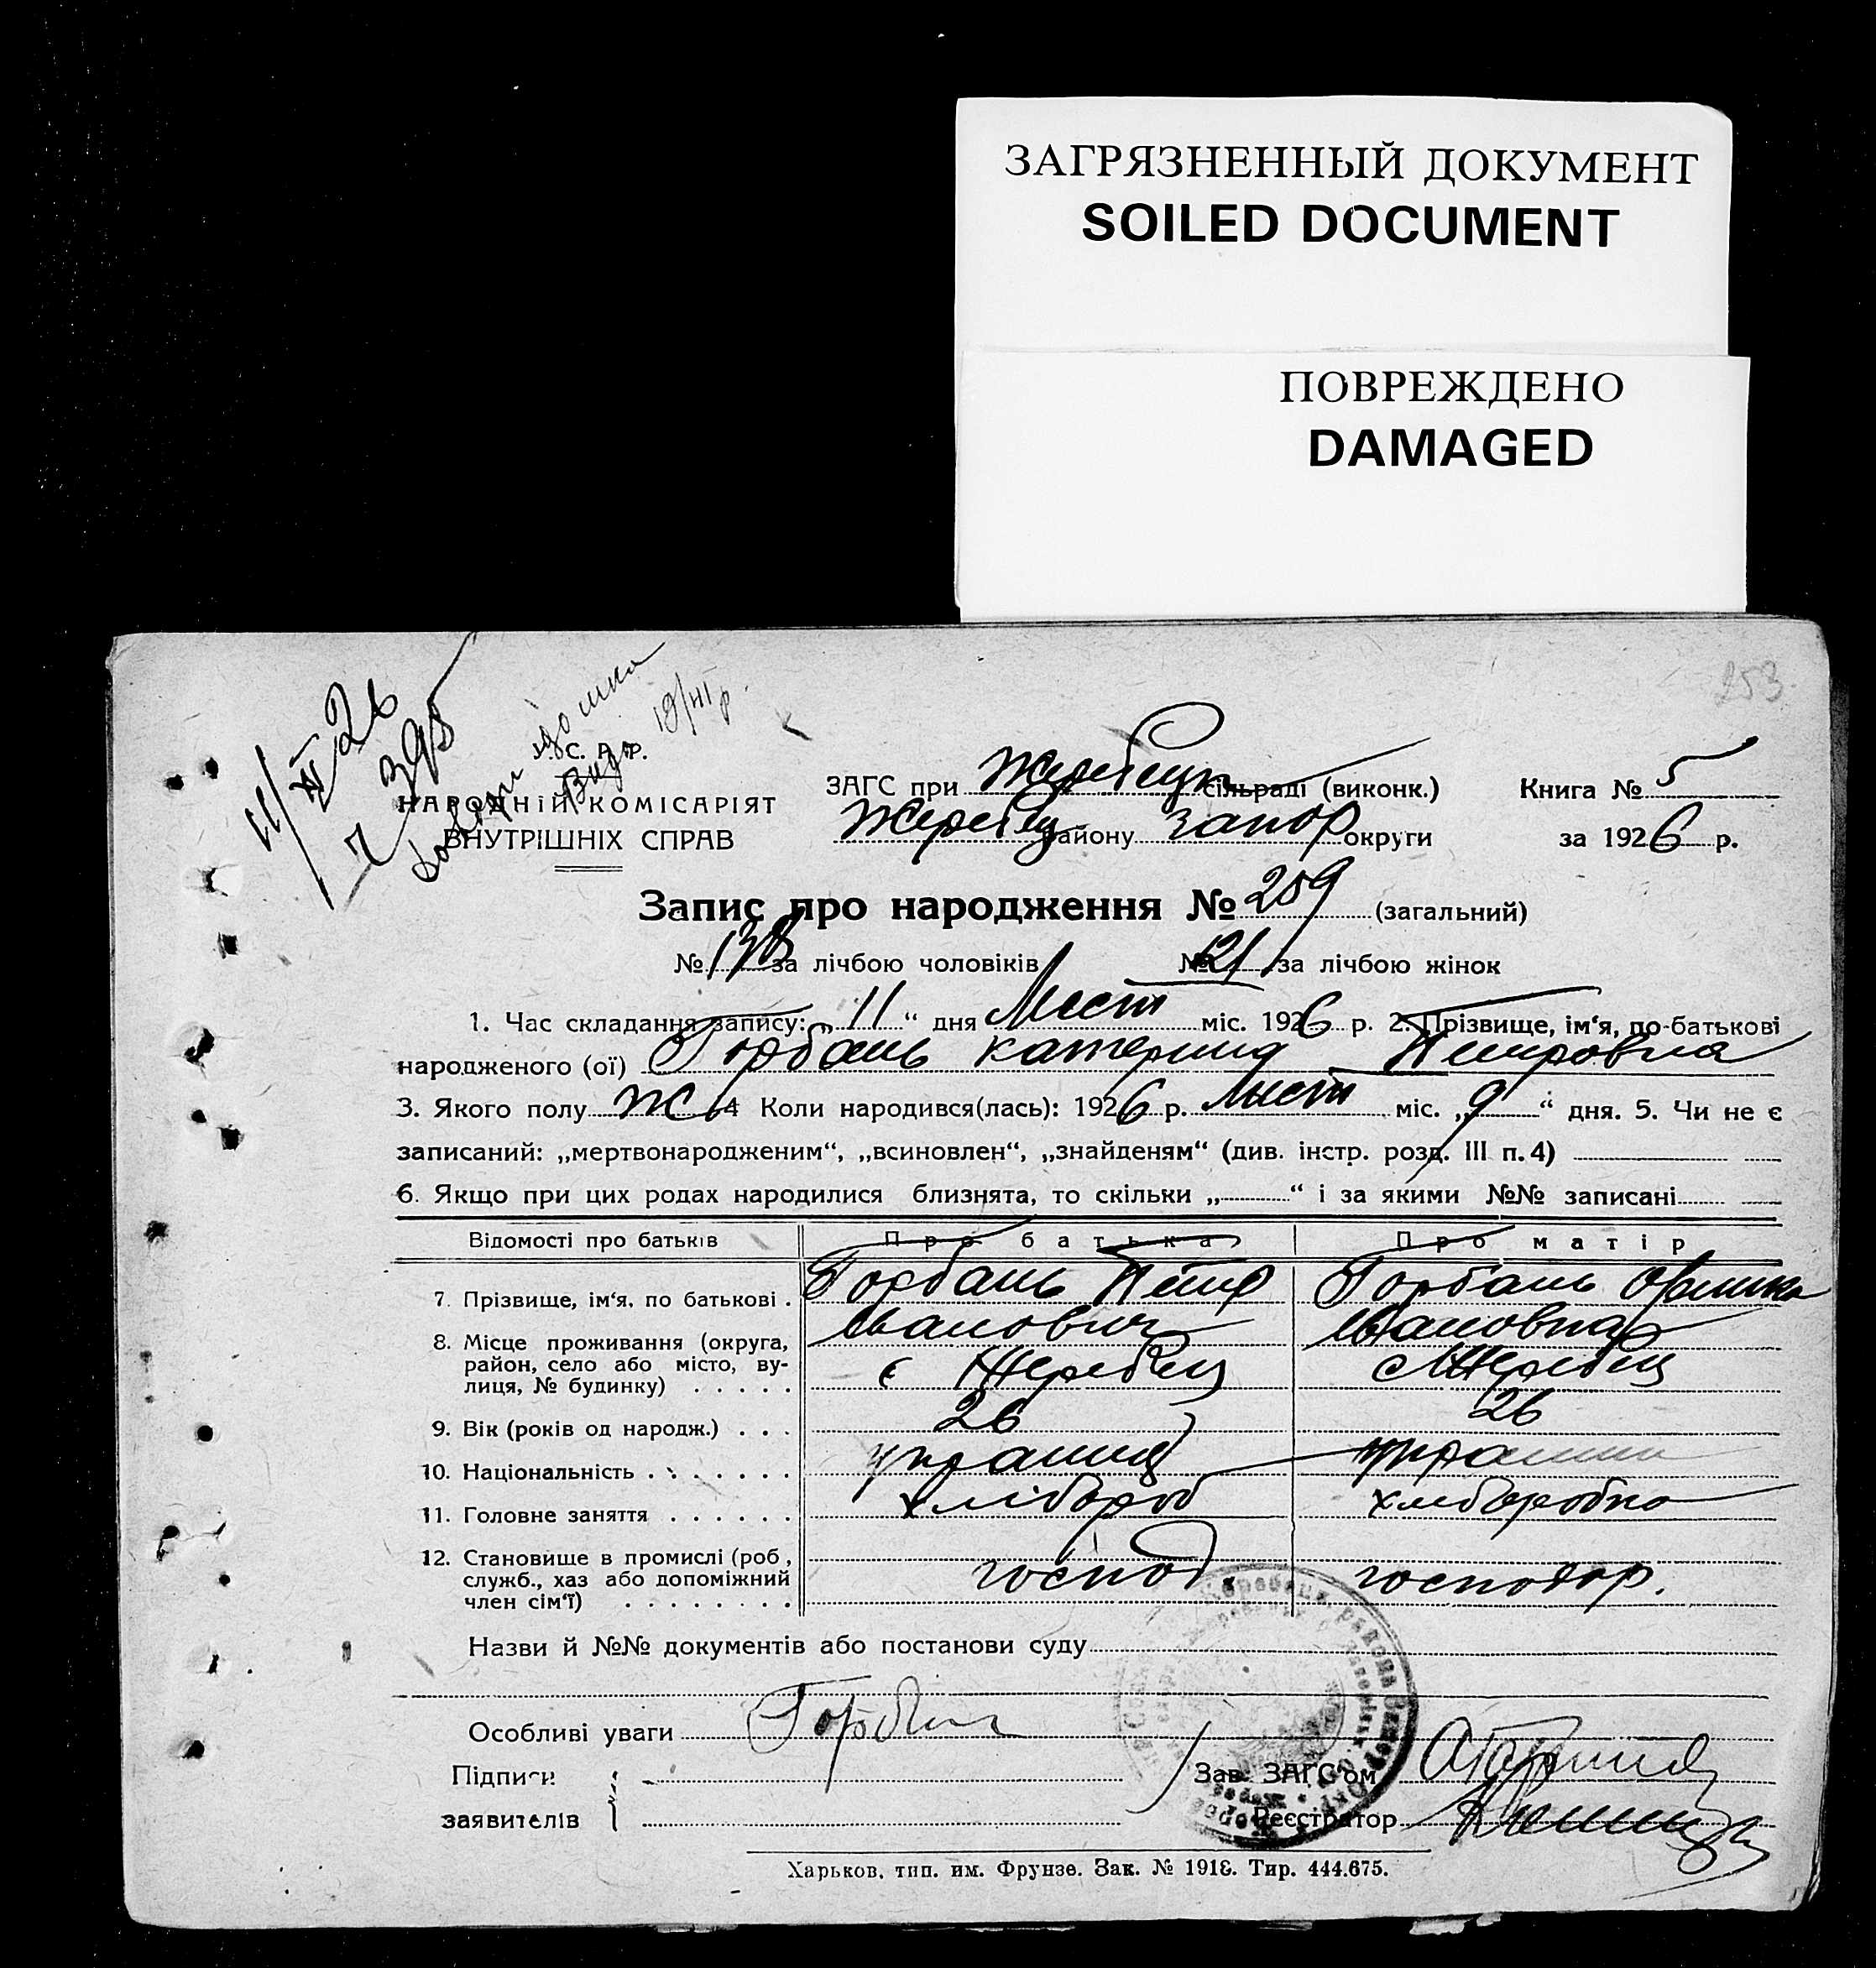 ЗАГРЯЗНЕННЫЙ ДОКУМЕНТ
SOILED DOCUMENT
ПОВРЕЖДЕНО
DAMAGED
253
11/XI 26
398
У. С. Р. Р.
НАРОДНІЙ КОМІСАРІЯТ
ВНУТРІШНІХ СПРАВ
ЗАГС при Жеребецк сільраді (виконк.) Книга № 5
Жеребец району Запор округи за 1926 р.
Запис про народження № 259 (загальний)
№ 138 за лічбою чоловіків № 121 за лічбою жінок
1. Час складання запису: „11“ дня Лист міс. 1926 р. 2. Прізвище, ім‘я, по-батькові
народженого (ої) Горбань Катерина Петровна
3. Якого полу Ж 4 Коли народився(лась): 1926 р. Лист міс. „9“ дня. 5. Чи не є
записаний: „мертвонародженим“, „всиновлен“, „знайденям“ (див. інстр. розд. III п. 4)
6. Якщо при цих родах народилися близнята, то скільки „ “ і за якими №№ записані
Відомості про батьків Про батька Про матір
7. Прізвище, ім‘я, по батькові . Горбань Петр Иванович Горбань Оришка Ивановна
8. Місце проживання (округа,
район, село або місто, ву-
лиця, № будинку) . . . . . с Жеребец с Жеребец
9. Вік (років од народж.) . . . 26 26
10. Національність . . . . . . . украинец украинка
11. Головне заняття . . . . . . хлібороб хлеборобка
12. Становище в промислі (роб,
служб., хаз або допоміжний
член сім‘ї) . . . . . . . . господ. господар.
Назви й №№ документів або постанови суду
Особливі уваги Горбань
Підписи
заявителів
Зав. ЗАГС‘ом
Реєстратор
Харьков, тип. им. Фрунзе. Зак. № 1918. Тир. 444.675.